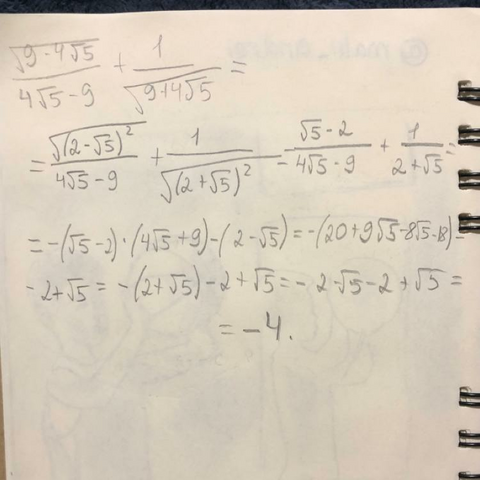 √(9-4√5)/(4√5-9) + 1/√(9+4√5) =
= √((2-√5)²)/(4√5-9) + 1/√((2+√5)²) = (√5-2)/(4√5-9) + 1/(2+√5) =
= -(√5-2)·(4√5+9)-(2-√5) = -(20+9√5-8√5-18)-
-2+√5 = -(2+√5)-2+√5 = -2-√5-2+√5 =
= -4.